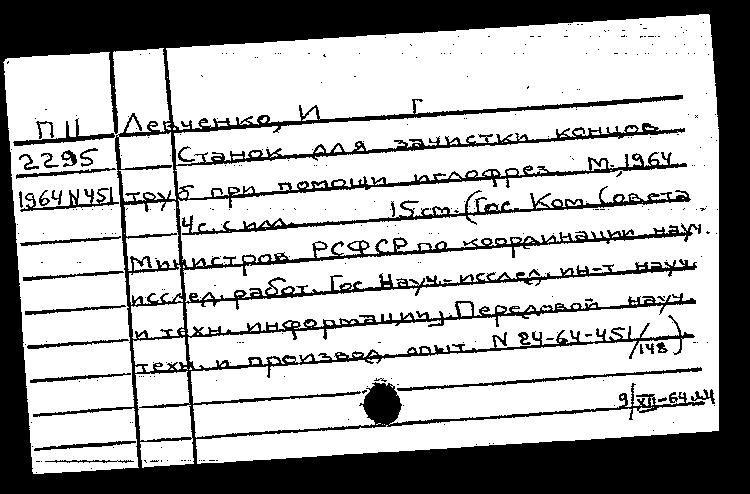 ПЦ Левченко, И Г
2295 Станок для зачистки концов
1964 N 451 труб при помощи иглофрез. М., 1964
4с. с илл. 15 cm. (Гос. Ком. Совета
Министров РСФСР по координации науч.
исслед. работ. Гос. Науч.-исслед. ин-т науч.
и техн. информации). Передовой науч.
техн. и производ. опыт. N 24-64-451/148).
9/XII-64